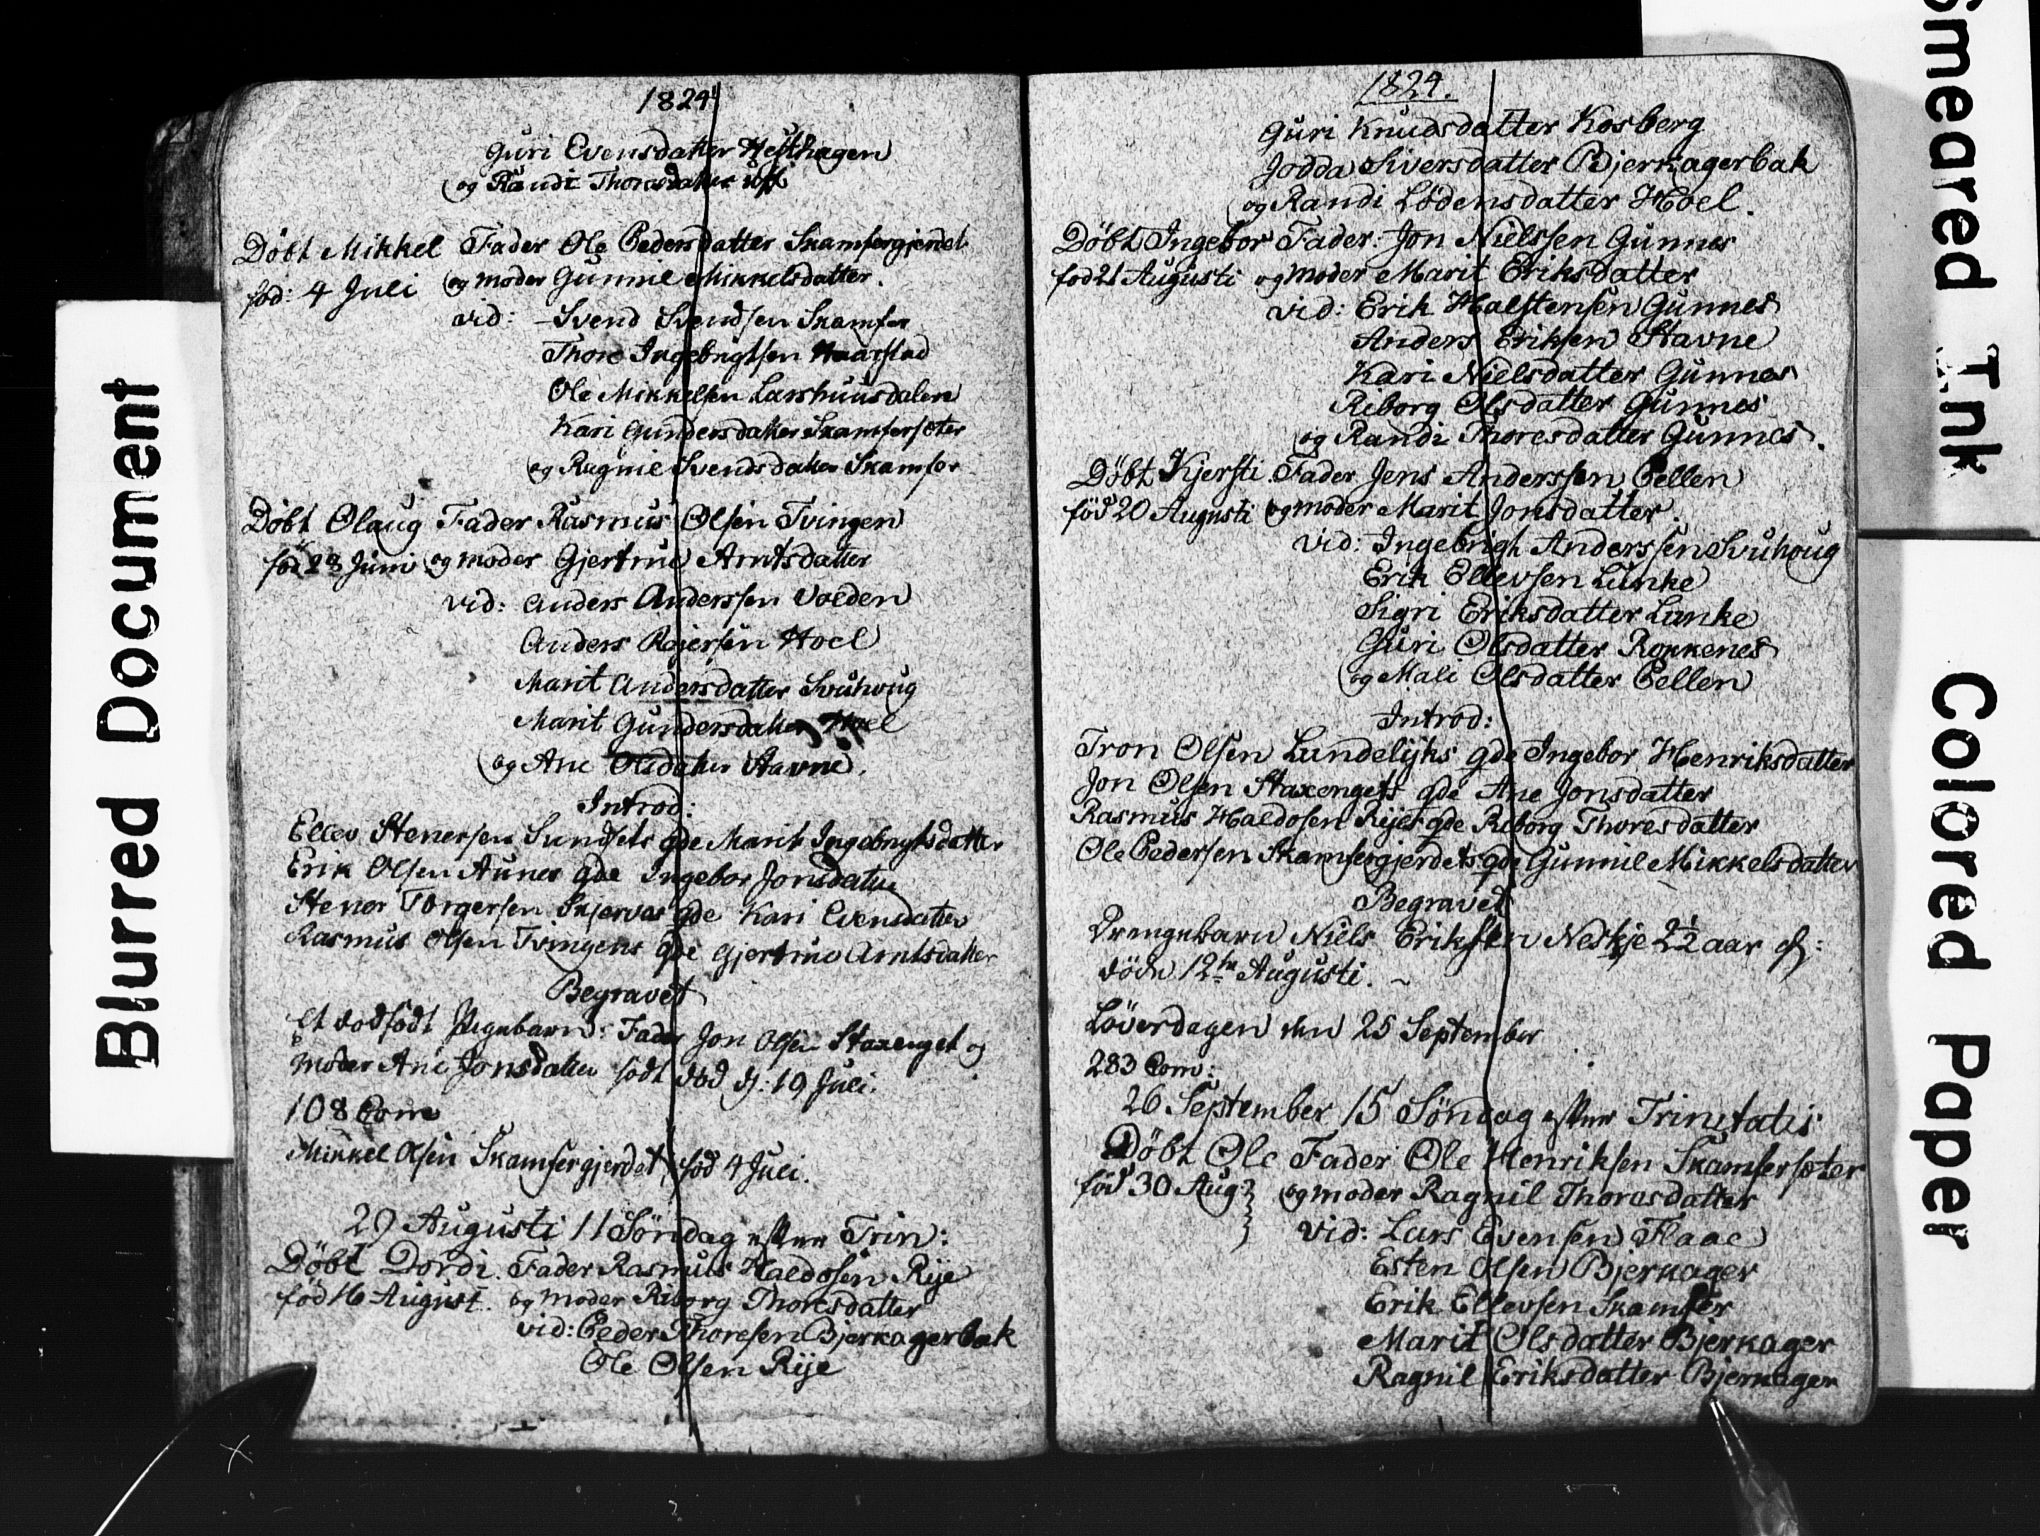 1824
Guri Evensdatter Hesthagen
og Randi Thoresdatter
Døbt Mikkel Fader Ole Pedersdatter Skamfergjerdet
fød: 4 Juli og moder Gunnil Mikkelsdatter.
vid: Svend Svendsen Skamfer
Thore Ingebrigtsen Haarstad
Ole Mikkelsen Larshuusdalen
Kari Gundersdatter Skamfersæter
og Ragnil Svendsdatter Skamfer
Døbt Olaug Fader Rasmus Olsen Tvingen
fød 28 Juni og moder Gjertrud Arntsdatter
vid: Anders Anderssen Volden
Anders Reiersen Hoel
Marit Andersdatter Svuhoug
Marit Gundersdatter Hoel
og Ane Olsdatter Stavne.
Introd:
Ellev Stenersen Sundsets qde Marit Ingebrigtsdatter
Erik Olsen Aunes qde Ingebor Jonsdatter
Stener Torgersen Skjervas qde Kari Evensdatter
Rasmus Olsen Tvingens qde Gjertrud Arntsdatter
Begravet
et dødfødt Pigebarn: Fader Jon Olsen Staxenget og
moder Ane Jonsdatter født død d: 19 Juli.
108 Com
Mikkel Olsen Skamfergjerdet fød 4 Juli.
29 Augusti 11 Søndag efter Trin:
Døbt Dordi. Fader Rasmus Haldosen Rije
fød 16 August. og moder Riborg Thoresdatter
vid: Peder Thoresen Bjerkagerbak
Ole Olsen Rije
1824.
Guri Knudsdatter Kosberg
Jodda Siversdatter Bjerkagerbak
og Randi Lodensdatter Hoel.
Døbt Ingebor Fader: Jon Nielssen Gunnes
fød 21 Augusti og moder Marit Eriksdatter
vid: Erik Halstensen Gunnes
Anders Eriksen Stavne
Kari Nielsdatter Gunnes
Riborg Olsdatter Gunnes
og Randi Thoresdatter Gunnes.
Døbt Kjersti. Fader Jens Anderssen Pellen
fød 20 Augusti og moder Marit Jonsdatter.
vid: Ingebrigt Anderssen Svuhoug
Erik Ellevsen Lunke
Sigri Eriksdatter Lunke
Guri Olsdatter Rokkenes
og Mali Olsdatter Pellen
Introd:
Tron Olsen Lundelijks qde Ingebor Henriksdatter
Jon Olsen Staxengets qde Ane Jonsdatter
Rasmus Haldosen Rijes qde Riborg Thoresdatter
Ole Pedersen Skamfergjerdets qde Gunnil Mikkelsdatter
Begravet
Drengebarn Niels Eriksen Neskje 2½ aar
døde 12te Augusti.
Løverdagen den 25 September
283 Com:
26 September 15 Søndag efter Trinitatis
Døbt Ole Fader Ole Henriksen Skamfersæter
fød 30 Aug og moder Ragnil Thoresdatter
vid: Lars Evensen Flaae
Esten Olsen Bjerkager
Erik Ellevsen Skamfer
Marit Olsdatter Bjerkager
Ragnil Eriksdatter Bjerkager
Blurred Document
Smeared Ink
Colored Paper